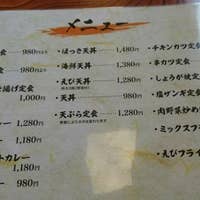 メニュー
定食 980円より
定食 980円より
揚げ定食
1,000円
1,280円
1,180円
トカレー
1,180円
980円
ほっき天丼 1,480円
海鮮天丼 1,380円
えび天丼 1,280円
天丼 980円
天ぷら定食 1,280円
チキンカツ定食
串カツ定食
しょうが焼定
塩ザンギ定食
肉野菜炒め
ミックスフ
えびフライ